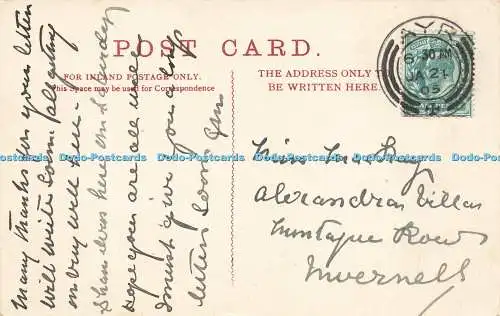 POST CARD.
FOR INLAND POSTAGE ONLY.
This Space may be used for Correspondence
THE ADDRESS ONLY TO
BE WRITTEN HERE.
AYR
8-30 AM
JA 21
05
Many thanks for your letter
will write soon. all getting
on very well here.
was here on Saturday
Hope you are all well
I must give you a long
letter soon
Miss
Alexandra Villa
Montague Row
Inverness
Dodo-Postcards Dodo-Postcards Dodo-Postcards Dodo-Postcards Dodo-Postcards Dodo-Postcards